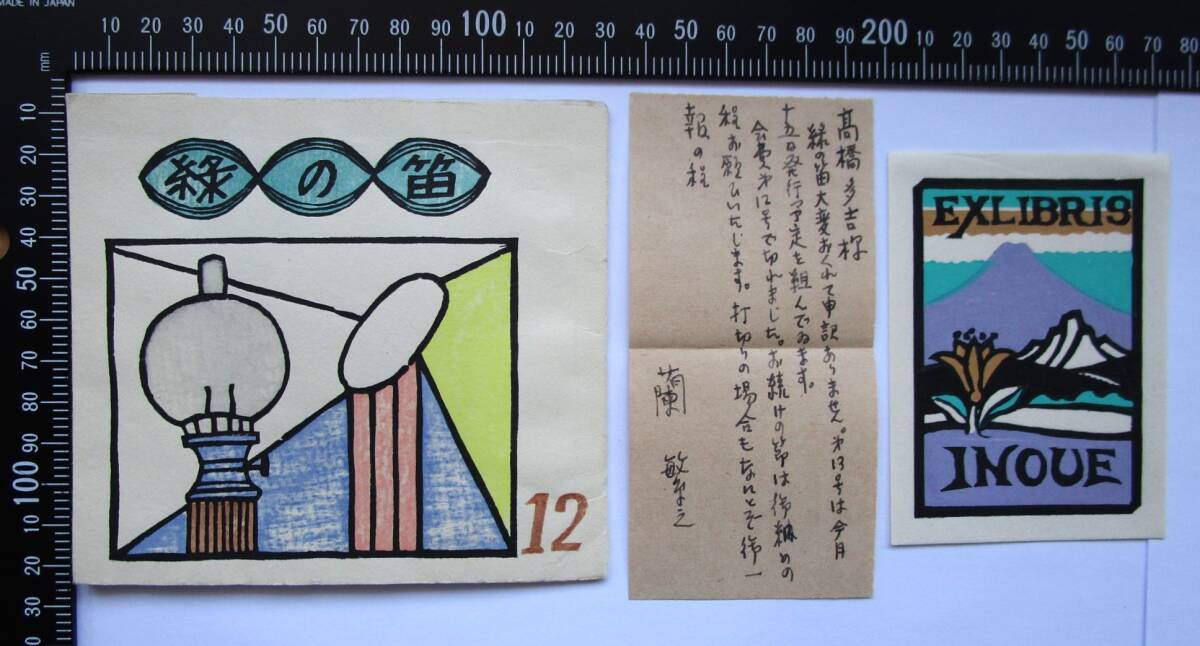 MADE IN JAPAN
10 20 30 40 50 60 70 80 90 100 10 20 30 40 50 60 70 80 90 200 10 20 30 40 50 60 70 80
mm
10
20
30
40
50
60
70
80
90
100
10
20
30
緑の笛
12
高橋多吉様
緑の笛大変おくれて申訳ありません。第13号は今月
十五日発行予定を組んでゐます。
会費第12号で切れました。お続けの節は御納めの
程お願ひいたします。打切りの場合もなにとぞ御一
報の程
蘭 繁之
EXLIBRIS
INOUE